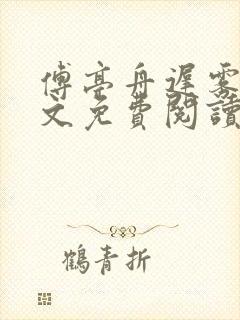 傅亭舟遲霧
文免費閱讀
鶴青折